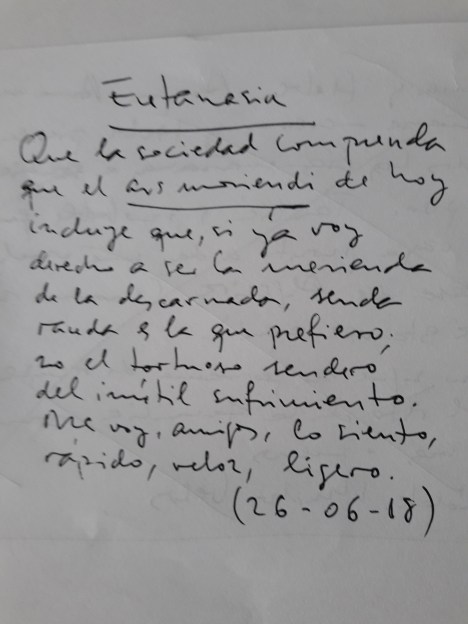 Eutanasia
Que la sociedad comprenda
que el ars moriendi de hoy
incluye que, si ya voy
derecho a ser la merienda
de la descarnada, senda
rauda es la que prefiero;
no el tortuoso sendero
del inútil sufrimiento.
Me voy, amigos, lo siento,
rápido, veloz, ligero.
(26-06-18)